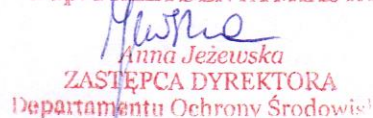 Anna Jeżewska
ZASTĘPCA DYREKTORA
Departamentu Ochrony Środowis